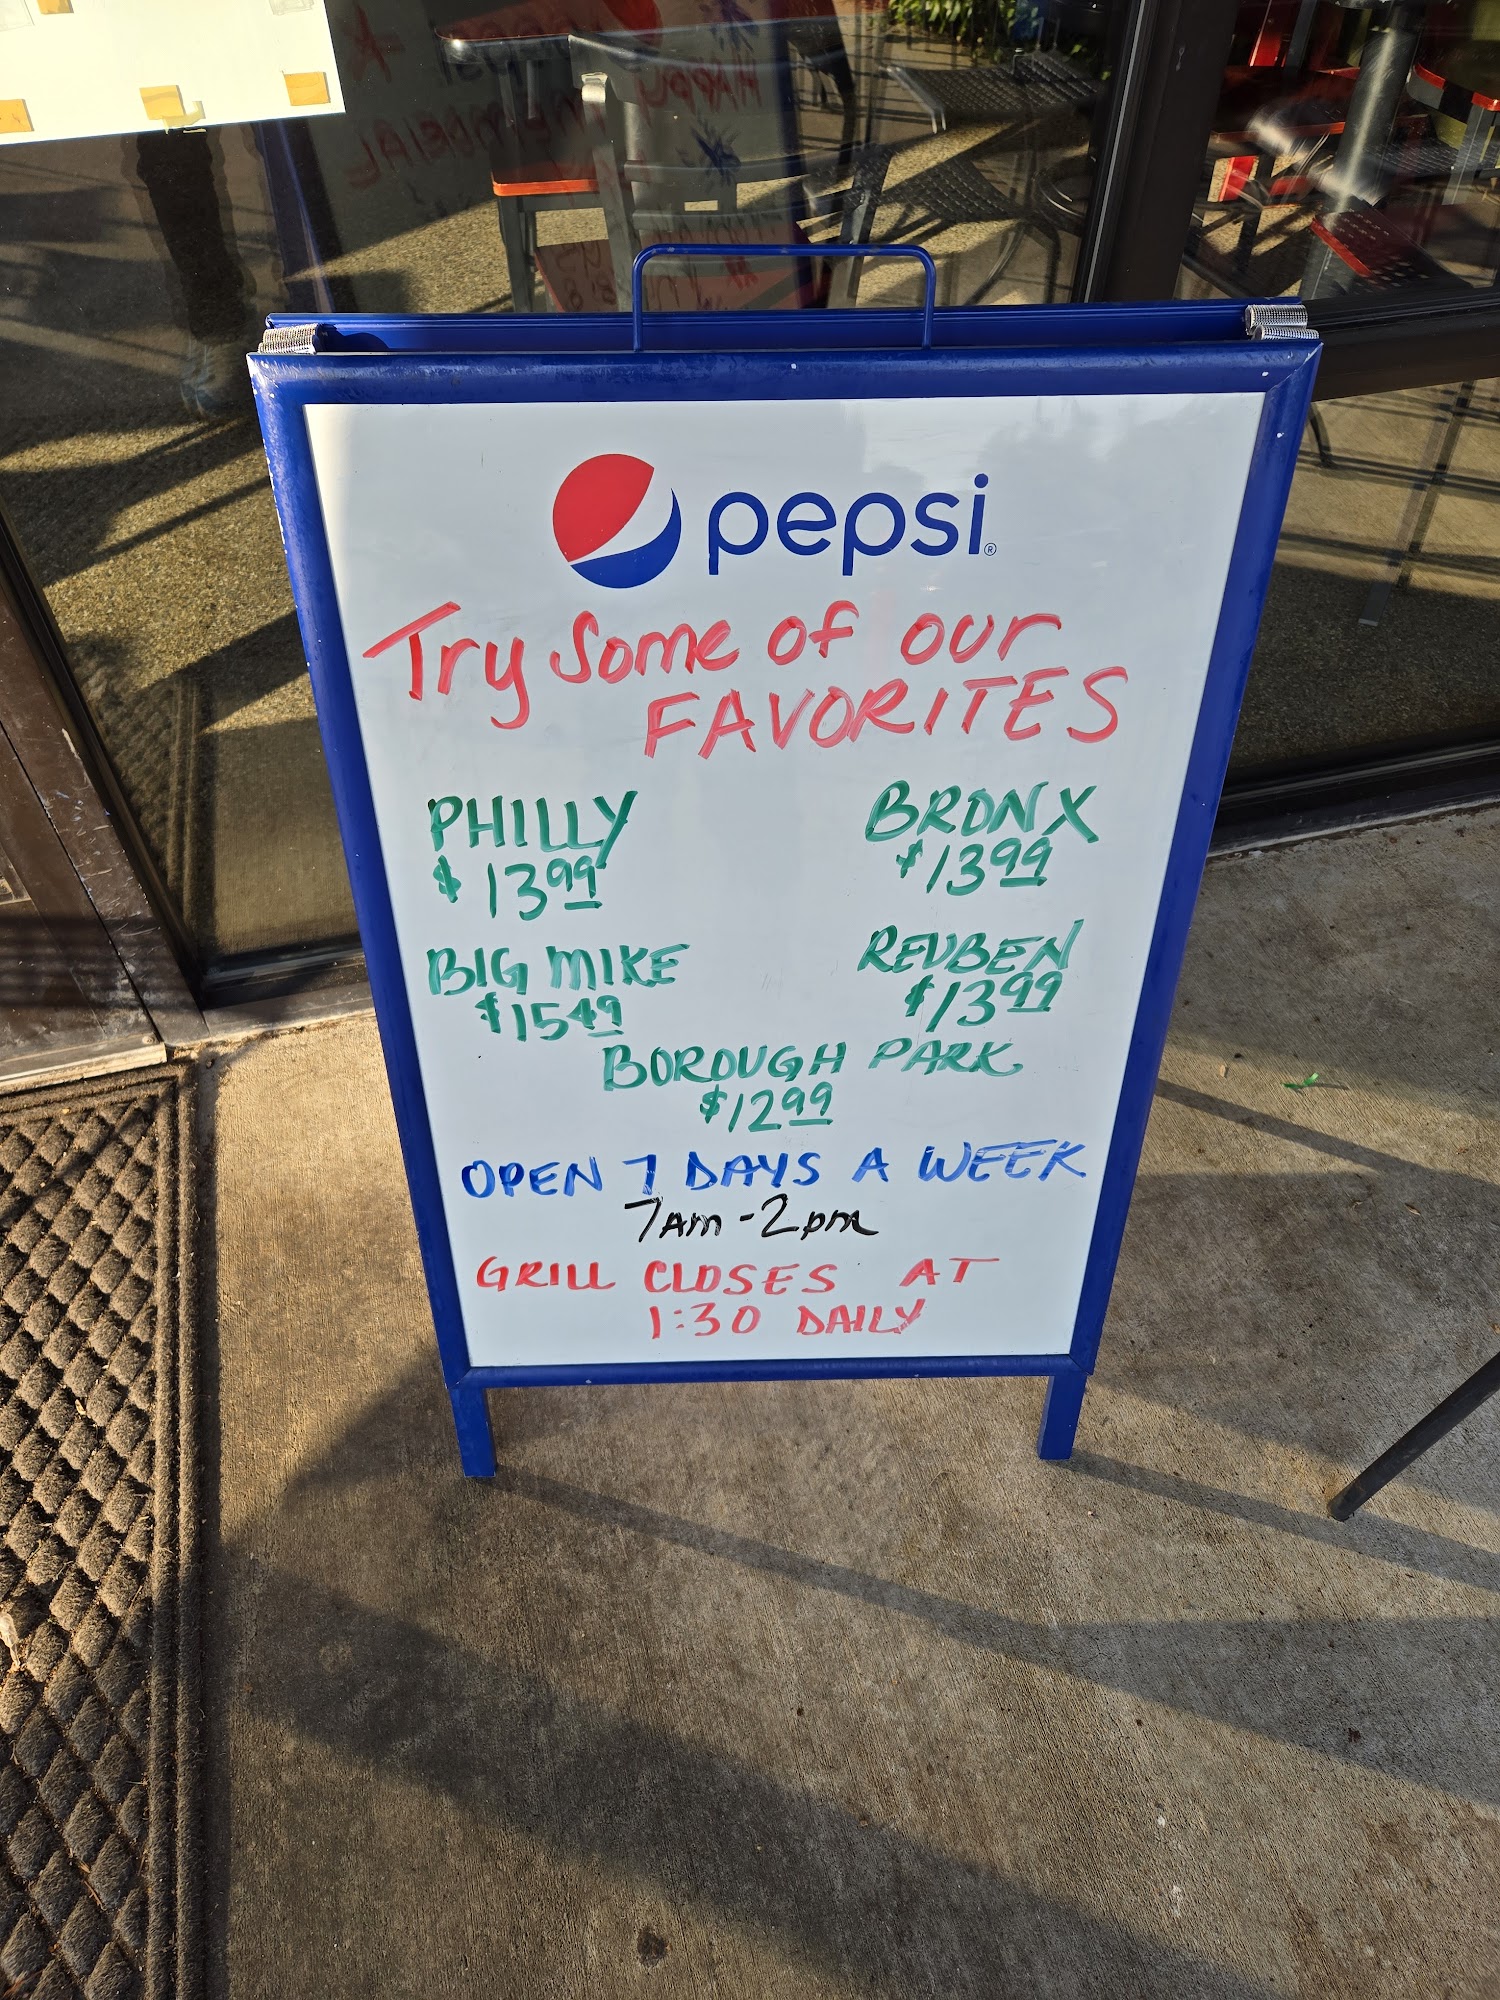 pepsi®
Try Some of our
FAVORITES
PHILLY
$13.99
BRONX
$13.99
BIG MIKE
$15.49
REUBEN
$13.99
BOROUGH PARK
$12.99
OPEN 7 DAYS A WEEK
7am-2pm
GRILL CLOSES AT
1:30 DAILY